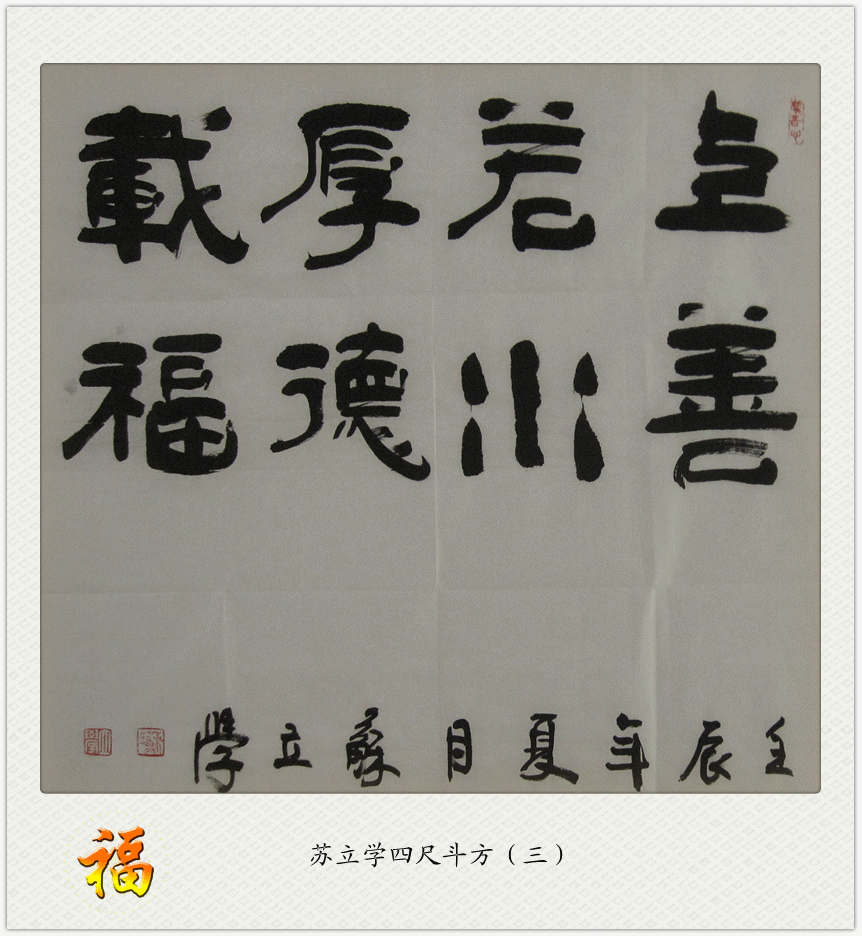 上善
若水
厚德
載福
壬辰年夏月蘇立學
福
苏立学四尺斗方（三）